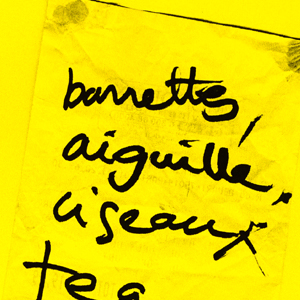 barrettes,
aiguille,
ciseaux
tea